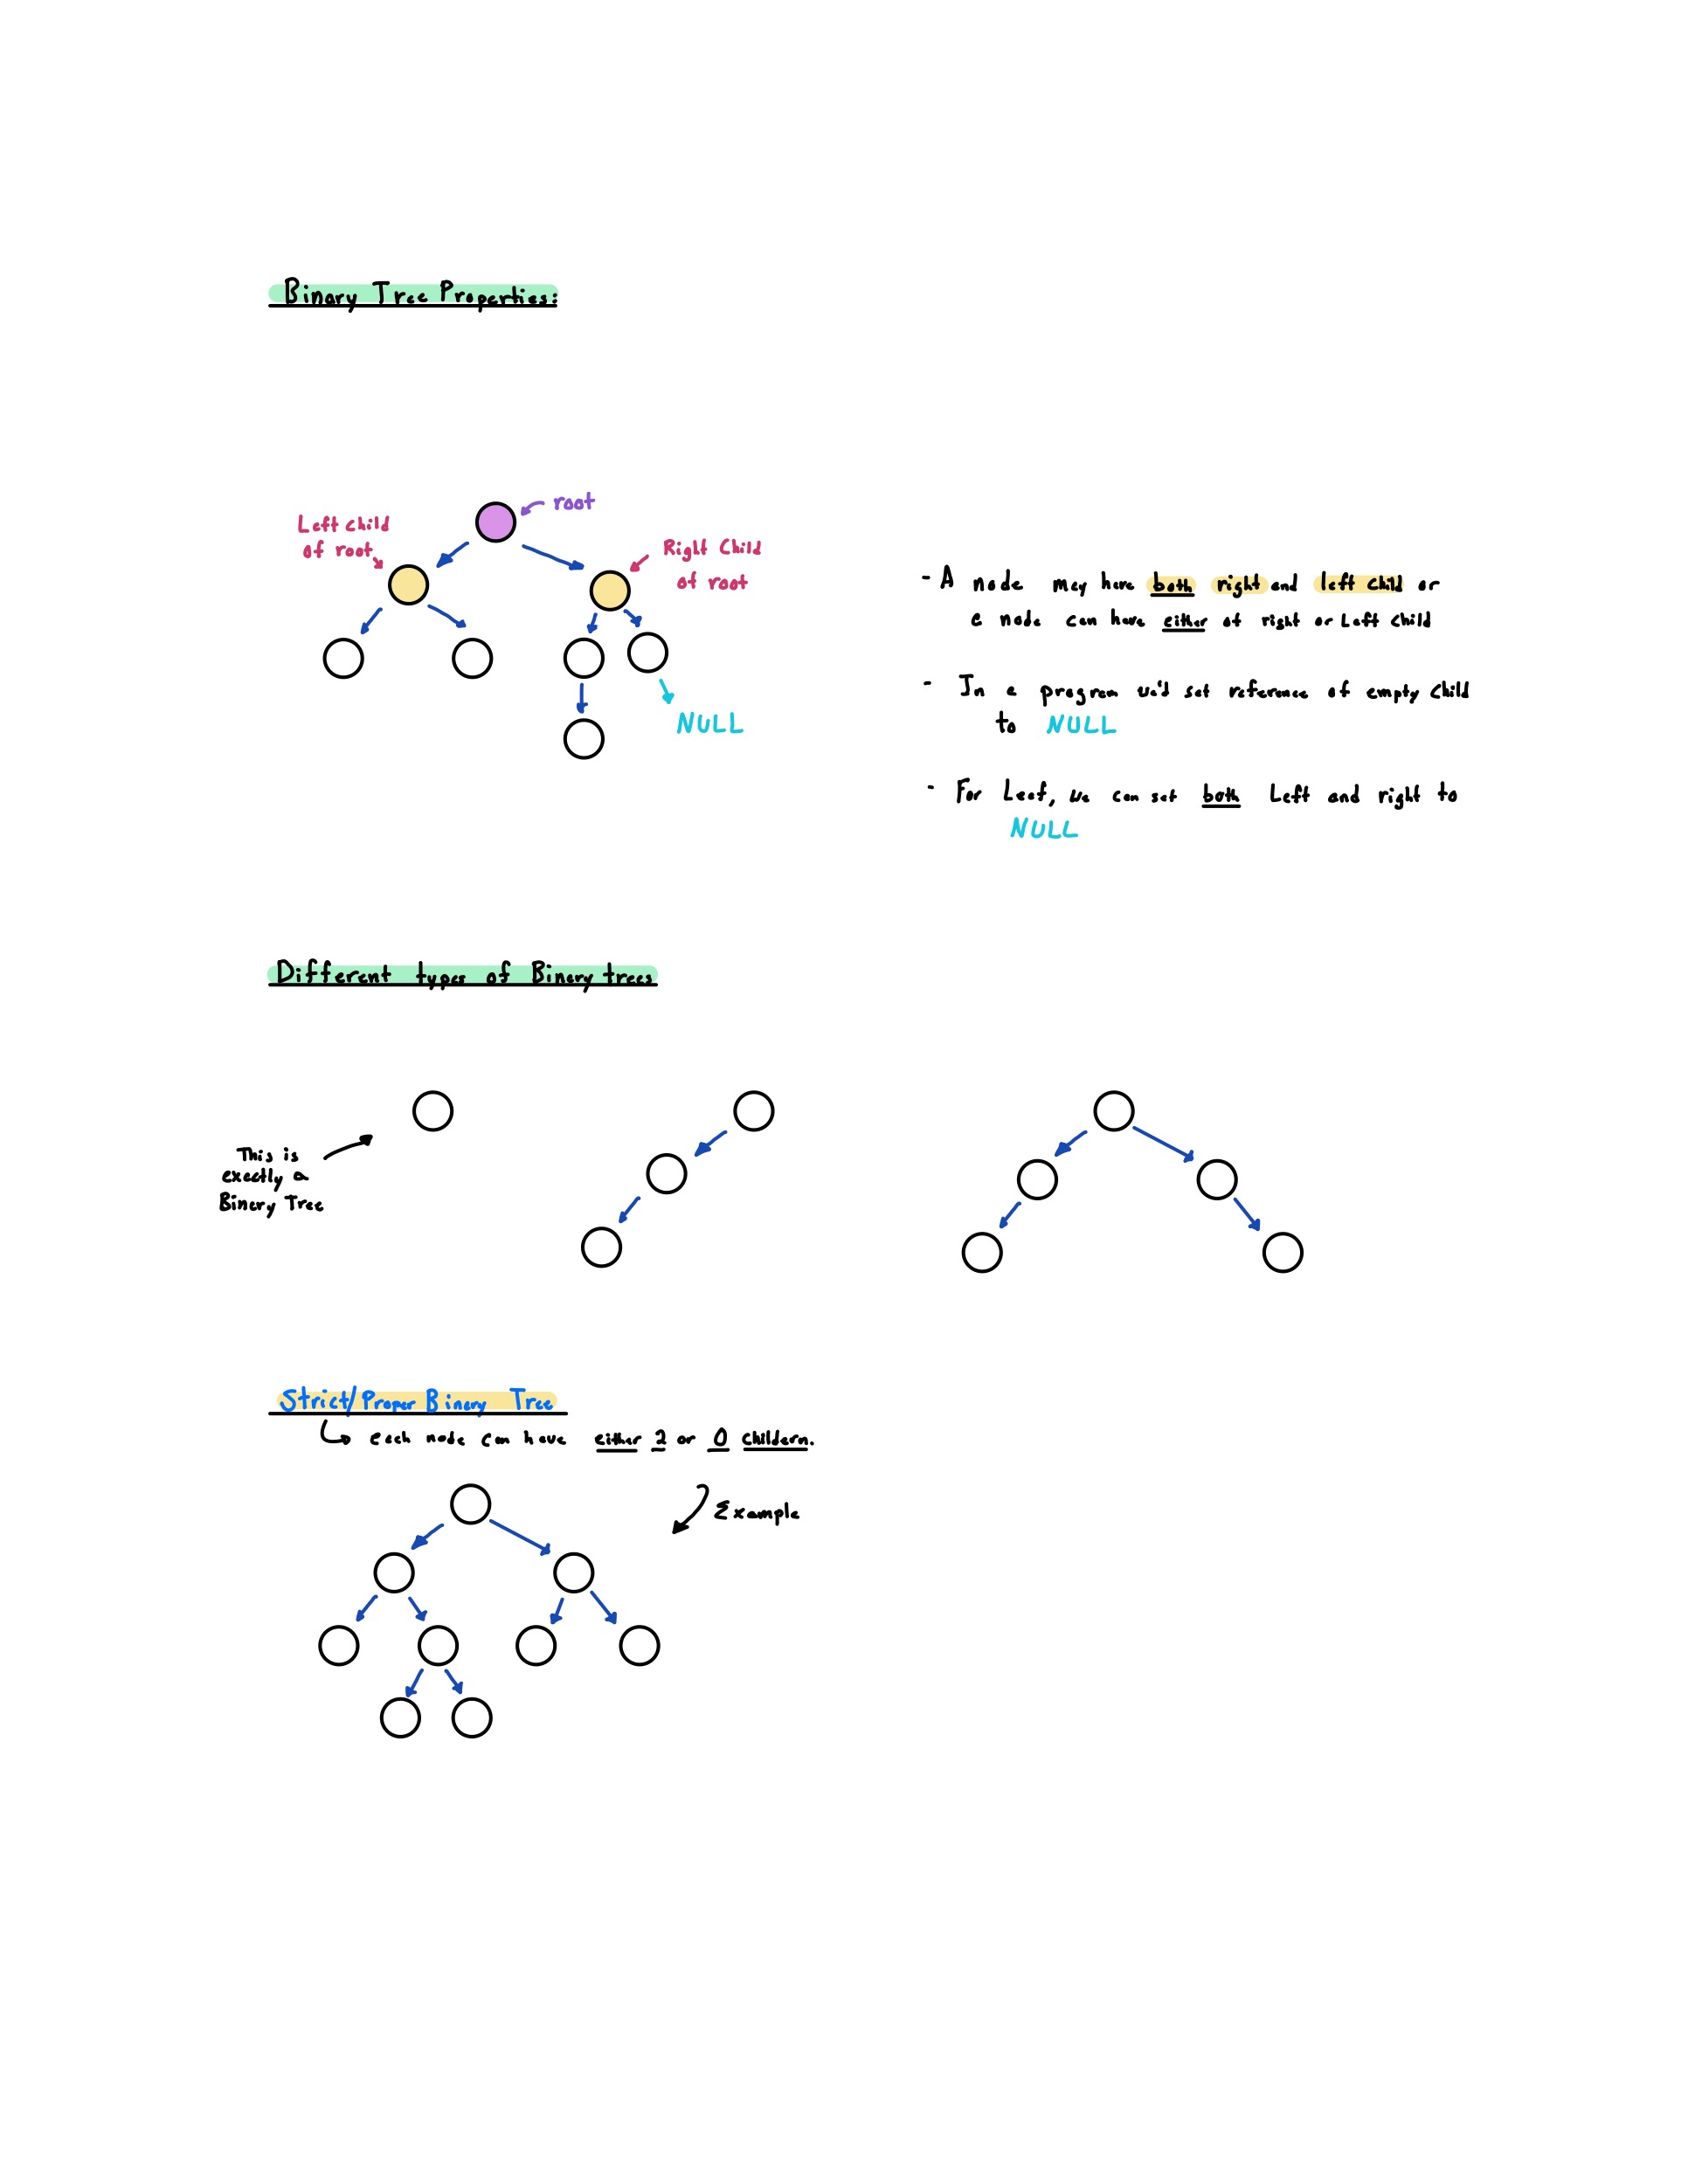 Binary Tree Properties:
root
Left child
of root
Right Child
of root
NULL
- A node may have both right and left child or
a node can have either of right or Left child
- In a program we'd set reference of empty child
to NULL
- For Leaf, we can set both Left and right to
NULL
Different types of Binary trees
This is
exactly a
Binary Tree
Strict/Proper Binary Tree
each node can have either 2 or 0 childern.
Example